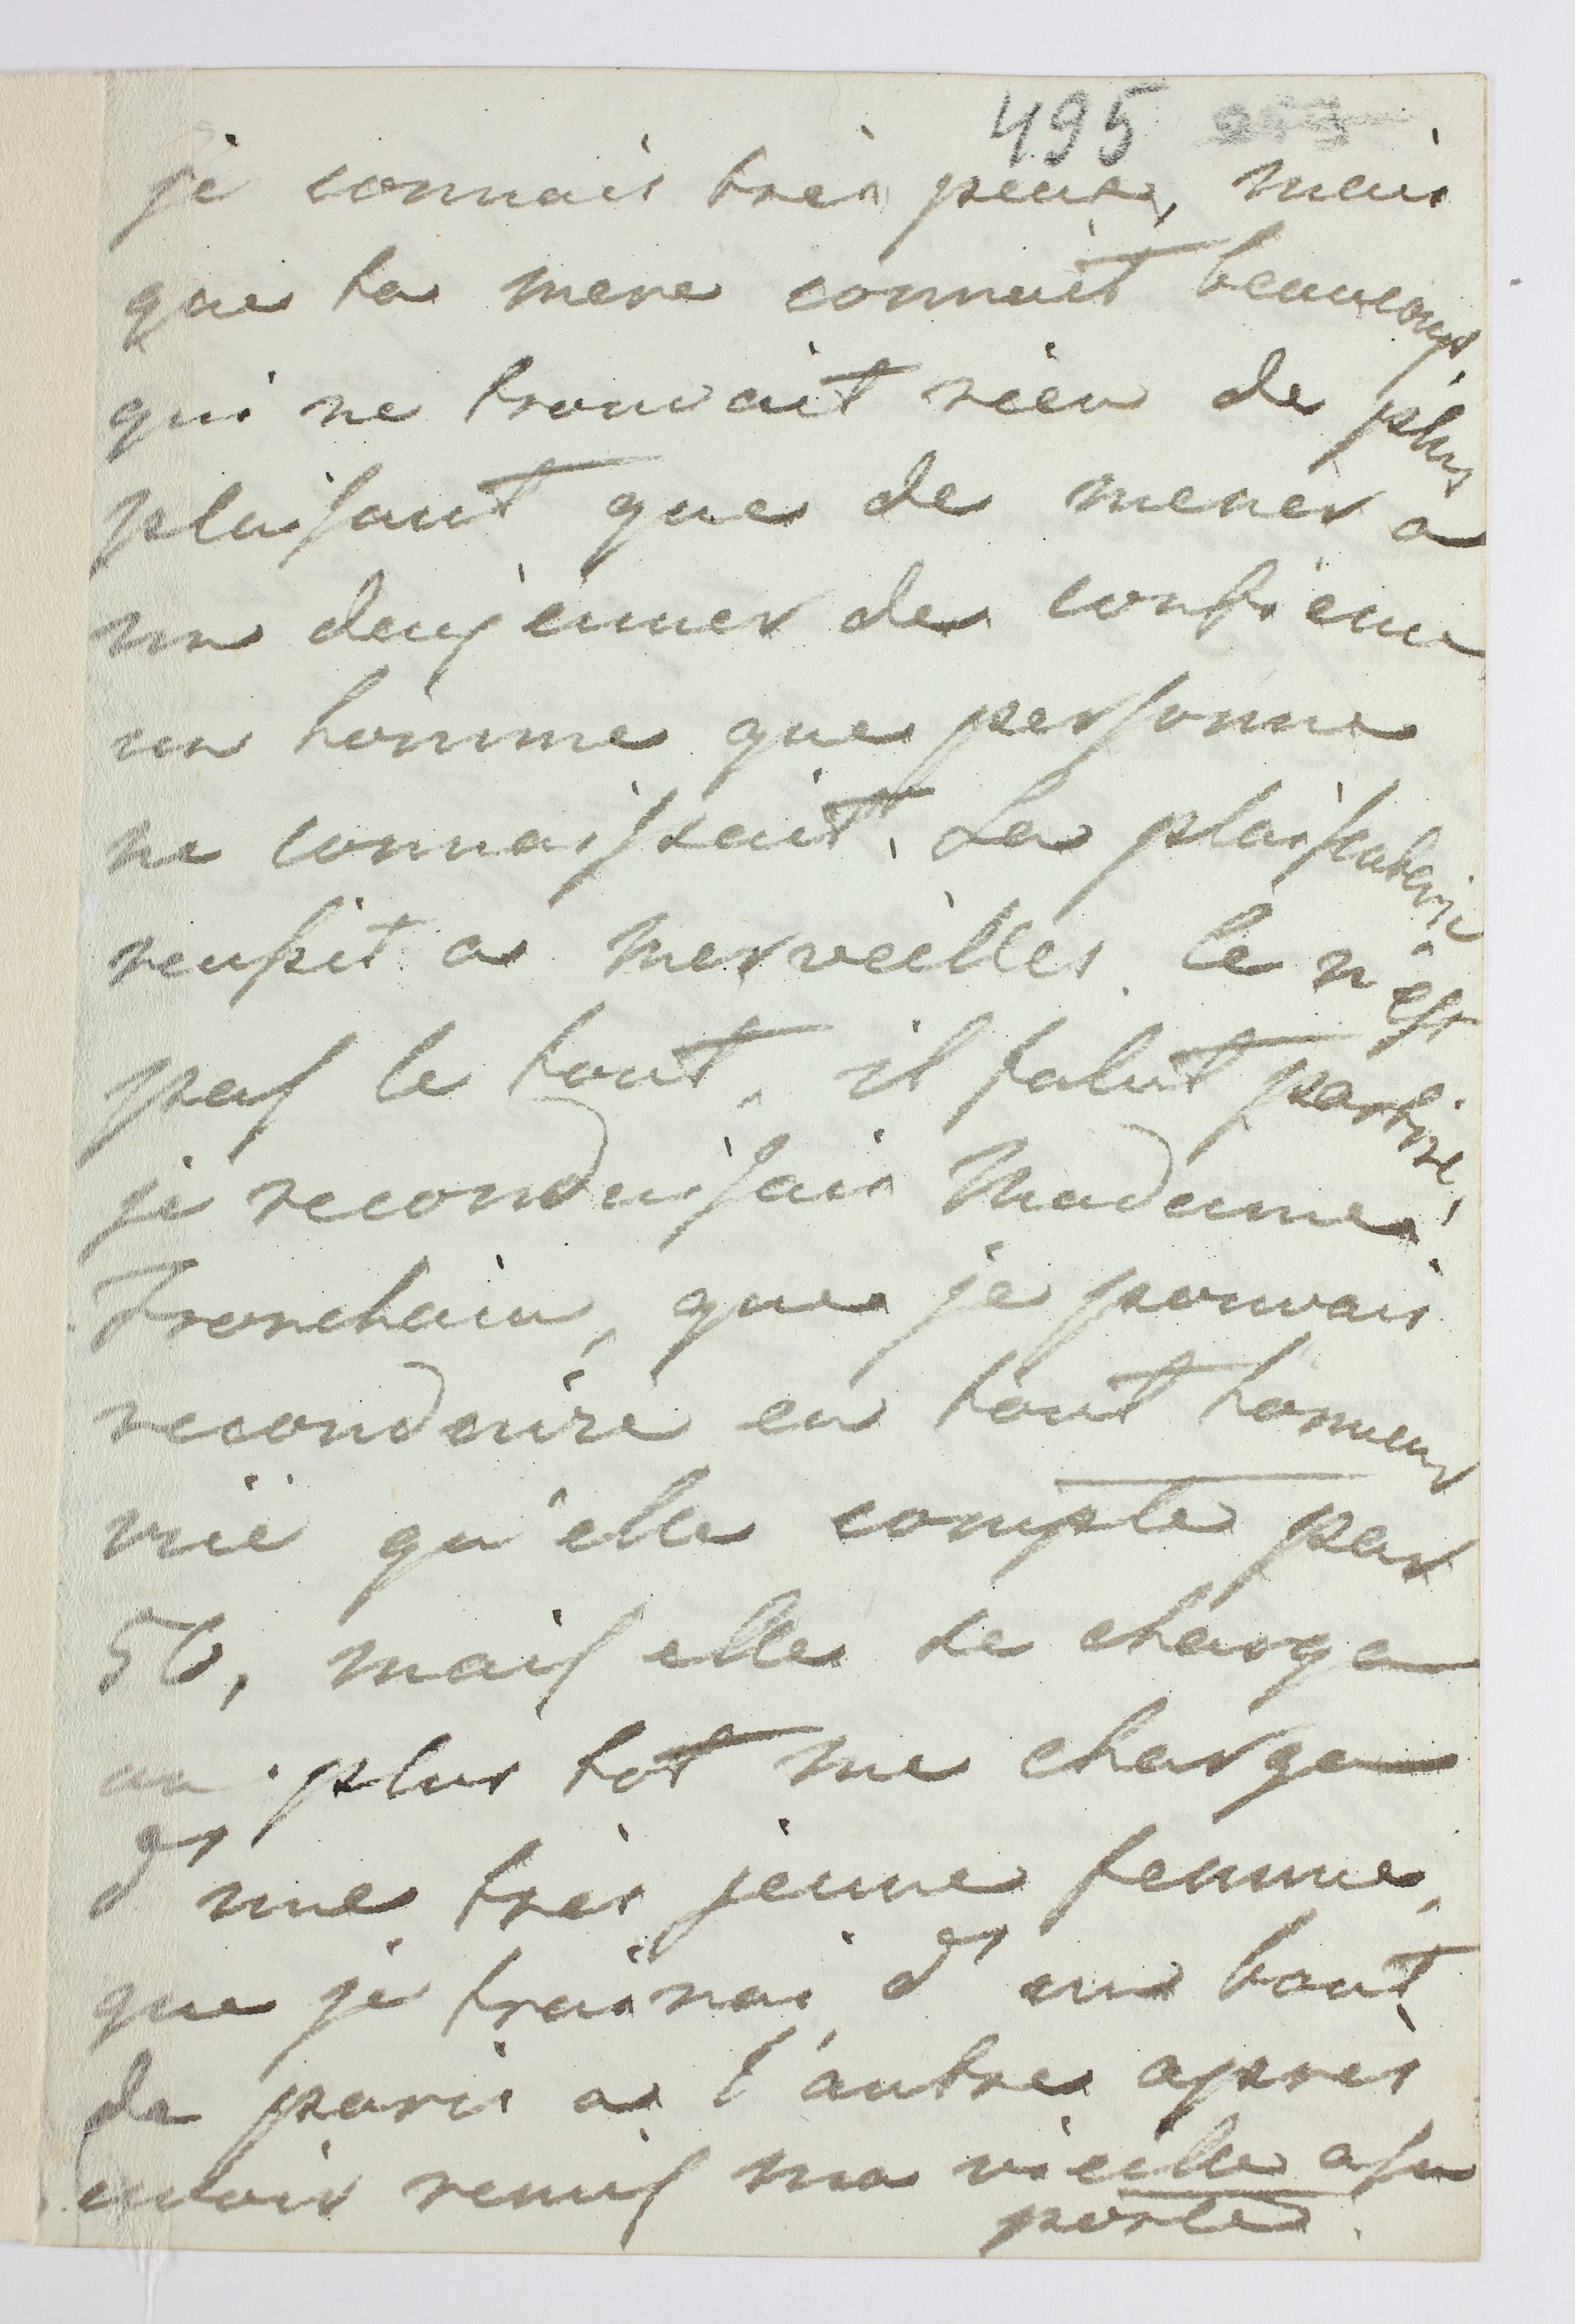 495
je connais tres peux, mais
que ta mere connait beaucoup
qui ne trouvait rien de plus
plaisant que de mener a
un deujeuner de contience
un homme que personne
ne connaissait. La plaisanterie
reussit a merveilles. Ce n'est
pas le tout. il falut partire,
je reconduisais Madame
Tronchain, que je pouvais
reconduire en tout honneur
vue qu'elle compte par
50, mais elle se charge
ou plus tot me charge
d'une tres jeune femme,
que je trainai d'un bout
de paris a l'autre apres
avoir remis ma vieille a sa
porte.